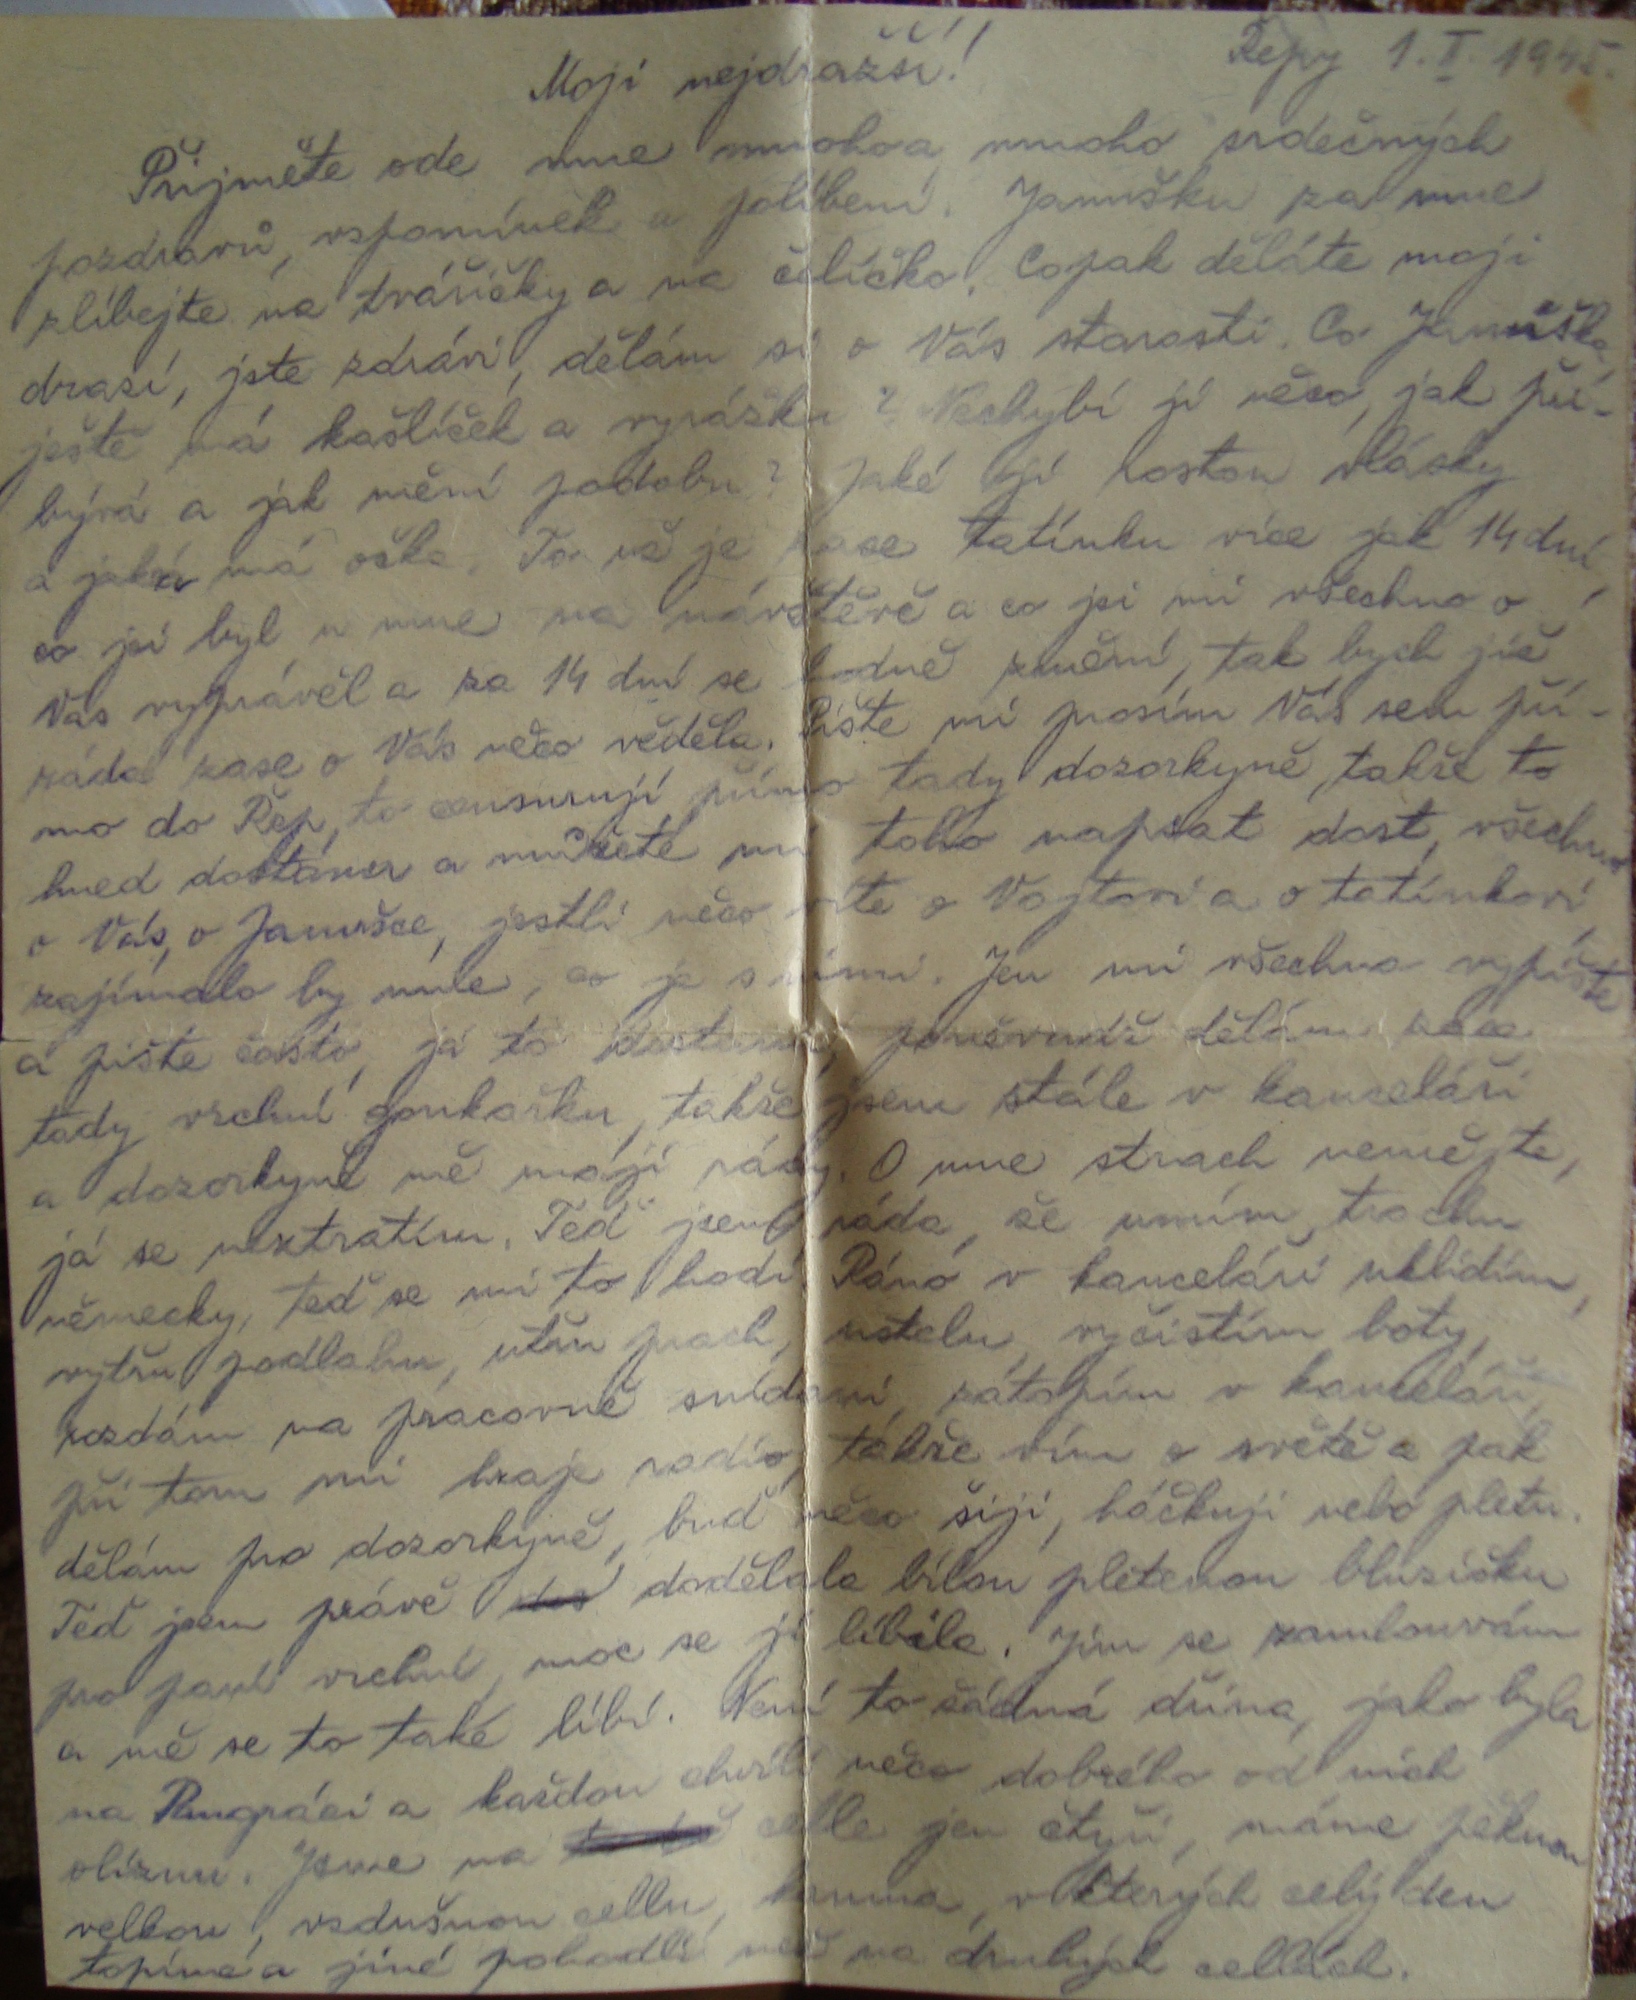 Řepy 1.II. 1945.
Moji nejdražší!
Přijměte ode mne mnoho a mnoho srdečných
pozdravů, vzpomínek a políbení. Janušku za mne
zlíbejte na tvářičky a na čelíčko. Copak děláte moji
drazí, jste zdrávi, dělám si o Vás starosti. Co Januška,
ještě má kašlíček a vyrážku? Nechybí jí něco, jak při-
bývá a jak mění podobu? Jaké jí rostou vlásky
a jaká má očka. To už je zase tatínku více jak 14 dní,
co jsi byl u mne na návštěvě a co jsi mi všechno o
Vás vyprávěl a za 14 dní se hodně změní, tak bych již
ráda zase o Vás něco věděla. Pište mi prosím Vás sem pří-
mo do Řep, to censurují přímo tady dozorkyně, takže to
hned dostanu a můžete mi toho napsat dost, všechno
o Vás, o Janušce, jestli něco víte o Vojtovi a o tatínkovi,
zajímalo by mne, co je s nimi. Jen mi všechno vypište
a pište často, já to dostanu, poněvadž dělám zase
tady vrchní gonkařku, takže jsem stále v kanceláři
a dozorkyně mě mají rády. O mne strach nemějte,
já se neztratím. Teď jsem ráda, že umím trochu
německy, teď se mi to hodí. Ráno v kanceláři uklidím,
vytřu podlahu, utřu prach, ustelu, vyčistím boty,
rozdám na pracovně snídani, zátopím v kanceláři,
při tom mi hraje radio, takže vím o světě a pak
dělám pro dozorkyně, buď něco šiji, háčkuji nebo pletu.
Teď jsem právě dodělala bílou pletenou bluzičku
pro paní vrchní, moc se jí líbila. Jím se zamlouvám
a mě se to také líbí. Není to žádná dřina, jako byla
na Pangráci a každou chvíli něco dobrého od nich
olíznu. Jsme na celle jen čtyři, máme pěknou
velkou, vzdušnou cellu, kamna, v kterých celý den
topíme a jiné pohodlí než na druhých cellách.